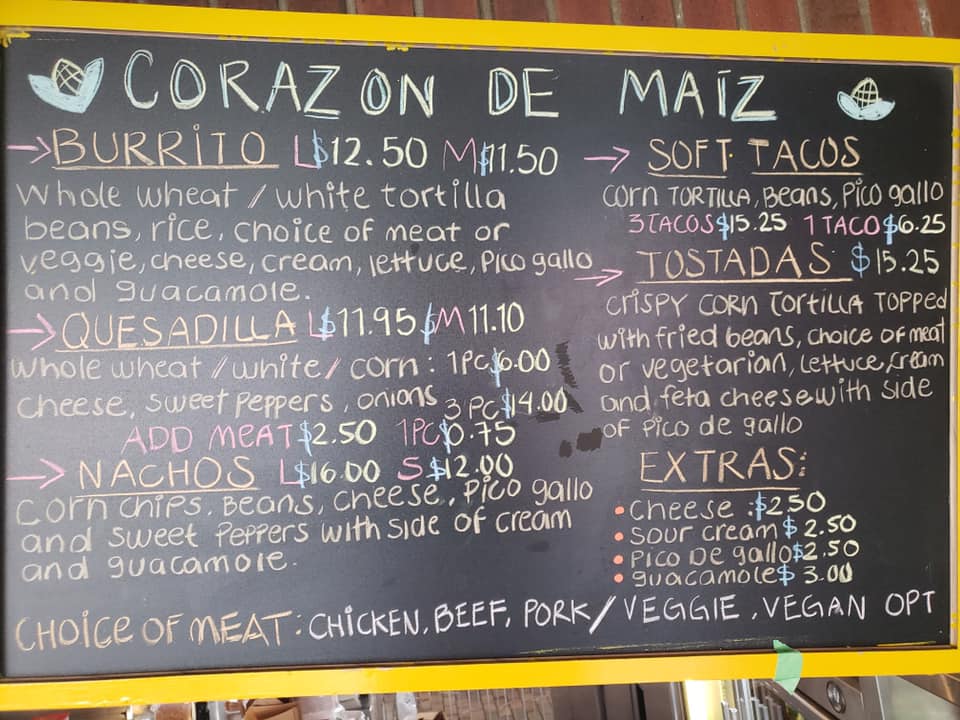 CORAZON DE MAÍZ
→ BURRITO L$12.50 M$11.50
Whole wheat / white tortilla
beans, rice, choice of meat or
veggie, cheese, cream, lettuce, Pico gallo
and guacamole.
→ QUESADILLA L$11.95 $M 11.10
Whole wheat / white / corn: 1PC $6.00
cheese, sweet peppers, onions 3 PC $14.00
ADD MEAT $2.50 1PC $0.75
→ NACHOS L$16.00 S $12.00
Corn chips, Beans, cheese, Pico gallo
and sweet Peppers with side of cream
and guacamole.
→ SOFT TACOS
corn TORTILLA, Beans, Pico gallo
3 TACOS $15.25 1 TACO $6.25
→ TOSTADAS $15.25
CRISPY CORN TORTILLA TOPPED
with fried beans, choice of meat
or vegetarian, Lettuce, cream
and feta cheese with side
of Pico de gallo
EXTRAS:
• cheese :$2.50
• sour cream $2.50
• Pico De gallo $2.50
• guacamole $3.00
CHOICE OF MEAT: CHICKEN, BEEF, PORK / VEGGIE, VEGAN OPT